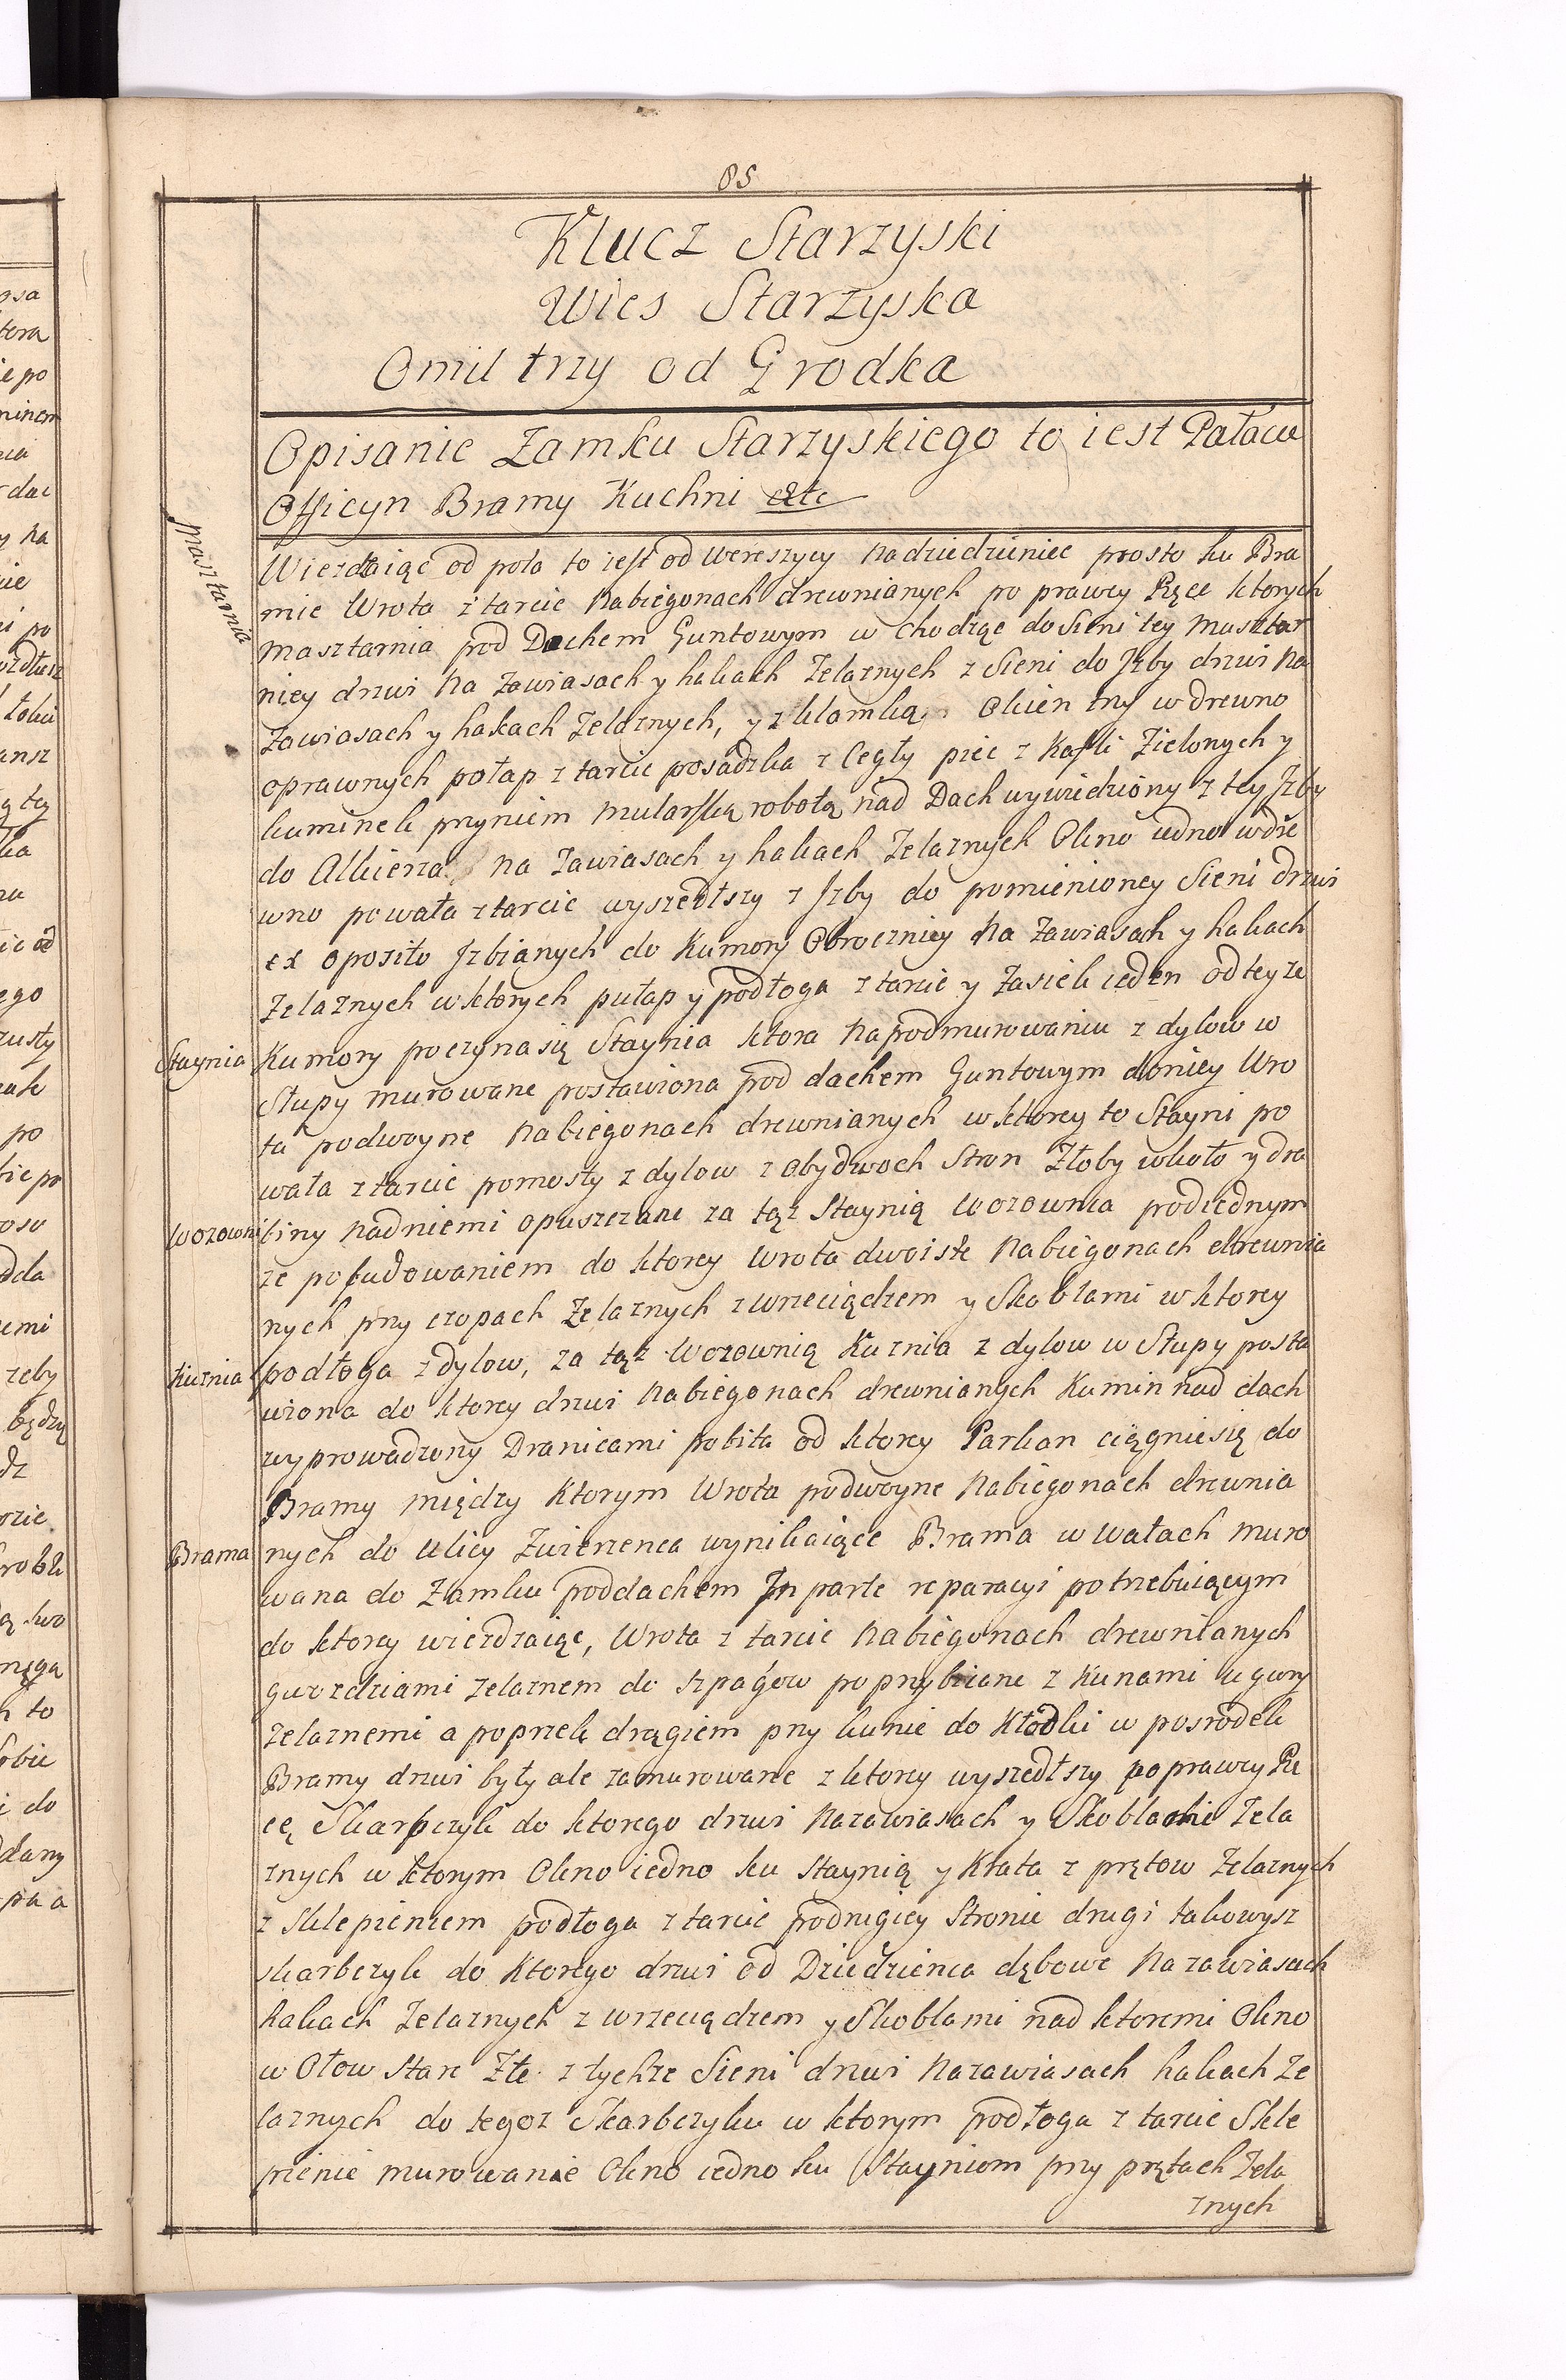 85
Klucz Starzyski
Wies Starzyska
O mil trzy od Grodka
Opisanie Zamku Starzyskiego to iest Pałacu
Officyn Bramy Kuchni etc
Masztarnia
Wiezdzaiąc od pola to iest od wereszycy na dziedziniec prosto ku Bra
mie Wrota z tarcic na biegonach drewnianych po prawey Ręce ktorych
masztarnia pod Dachem Guntowym w chodząc do Sieni tey Masztar
niey drzwi na zawiasach y hakach Zelaznych z Sieni do Jzby drzwi na
zawiasach y hakach Zelaznych, y z klamką, Okien trzy w drewno
oprawnych połap z tarcic posadzka z Cegły piec z Kafli Zielonych y
kuminek przyniem mularską robotą nad Dach wywiedziony z tey Jzby
do Alkierza na Zawiasach y hakach Zelaznych Okno iedno w dre
wno powała z tarcic wyszedłszy z Jzby do pomienioney Sieni drzwi
ex oposito Jzbianych do Kumory Obroczniey na Zawiasach y hakach
Zelaznych w ktorych pułap y podłoga z tarcic y Zasiek ieden od teyze
Staynia
Kumory poczyna się Staynia ktora na podmurowaniu z dylow w
Słupy murowane postawiona pod dachem Guntowym do niey Wro
ta podwoyne na biegonach drewnianych w ktorey to Stayni po
wała z tarcic pomosty z dylow z obydwoch Stron Złoby wkoło y dra
Wozowni
biny nad niemi opuszczane za tąz Staynią Wozownia pod iednym
ze pobudowaniem do ktorey Wrota dwoiste na biegonach drewnia
nych przy czopach Zelaznych z wrzeciądzem y Skoblami w ktorey
Kuznia
podłoga z dylow, za tąz Wozownią Kuznia z dylow w Słupy posta
wiona do ktorey drzwi na biegonach drewnianych Kumin nad dach
wyprowadzony Dranicami pobita od ktorey Parkan ciągnie się do
Bramy między Ktorym Wrota podwoyne na biegonach drewnia
Brama
nych do Ulicy Zwierzenca wynikaiące Brama w wałach muro
wana do Zamku pod dachem Jn parte reparacyi potrzebuiącym
do ktorey wiezdzaiąc, Wrota z tarcic na biegonach drewnianych
gwozdziami zelaznem do szpagow poprzybiiane z Kunami u gury
zelaznemi a poprzek drągiem przy kunie do Kłodki w posrodek
Bramy drzwi były ale zamurowane z ktorey wyszedłszy po prawey Rę
cę Skarbczyk do ktorego drzwi na zawiasach y Skoblach Zela
znych w ktorym Okno iedno ku Staynią y Krata z prętow Zelaznych
z Sklepieniem podłoga z tarcic po drugiey Stronie drugi takowysz
skarbczyk do Ktorego drzwi od Dziedzienca dębowe na zawiasach
hakach Zelaznych z wrzeciądzem y Skoblami nad ktoremi Okno
w Ołow Stare Złe z tychze Sieni drzwi na zawiasach hakach Ze
laznych do tegoz Skarbczyku w ktorym podłoga z tarcic Skle
pienie murowanie Okno iedno ku Stayniom przy prętach Zela
znych